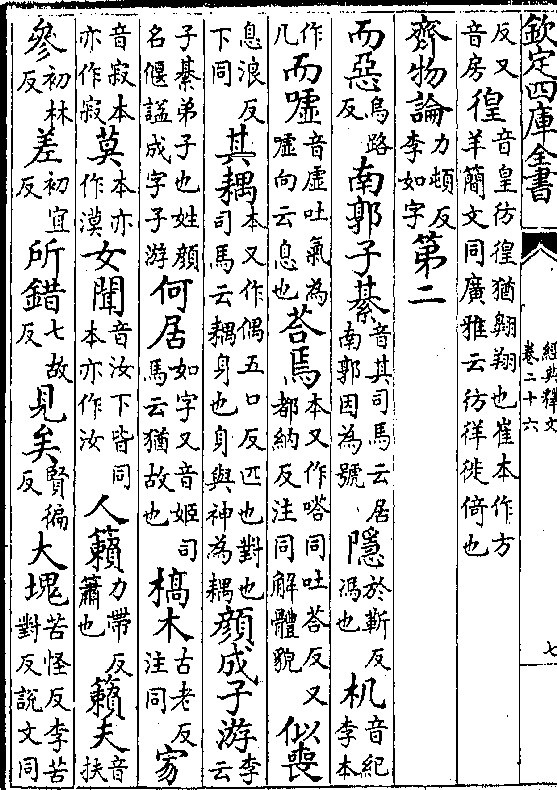 欽定四庫全書
經典釋文
卷二十六
七
反又音房徨音皇彷徨猶翱翔也崔本作方羊簡文同廣雅云彷徉徙倚也
齊物論力頓反李如字第二
而惡烏路反南郭子綦音其司馬云居南郭因為號隱於靳反馮也机音紀李本
作几而噓音虛吐氣為噓向云息也荅焉本又作嗒同吐荅反又都納反注同解體貌似喪
息浪反下同其耦本又作偶五口反匹也對也司馬云耦身也身與神為耦顏成子游李云
子綦弟子也姓顏名偃謚成字子游何居如字又音姬司馬云猶故也槁木古老反注同家
音寂本亦作寂莫本亦作漠女聞音汝下皆同本亦作汝人籟力帶反簫也籟夫音扶
參初林反差初宜反所錯七故反見矣賢徧反大塊苦怪反李苦對反說文同